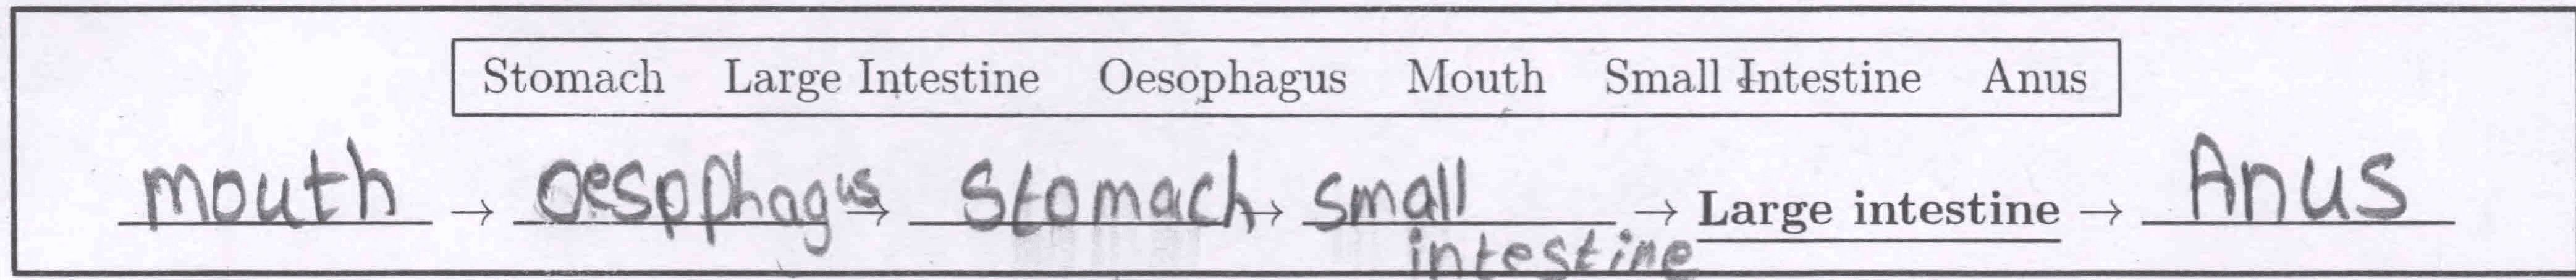 Stomach Large Intestine Oesophagus Mouth Small Intestine Anus
mouth → oesophagus → Stomach → small → Large intestine → Anus
intestine